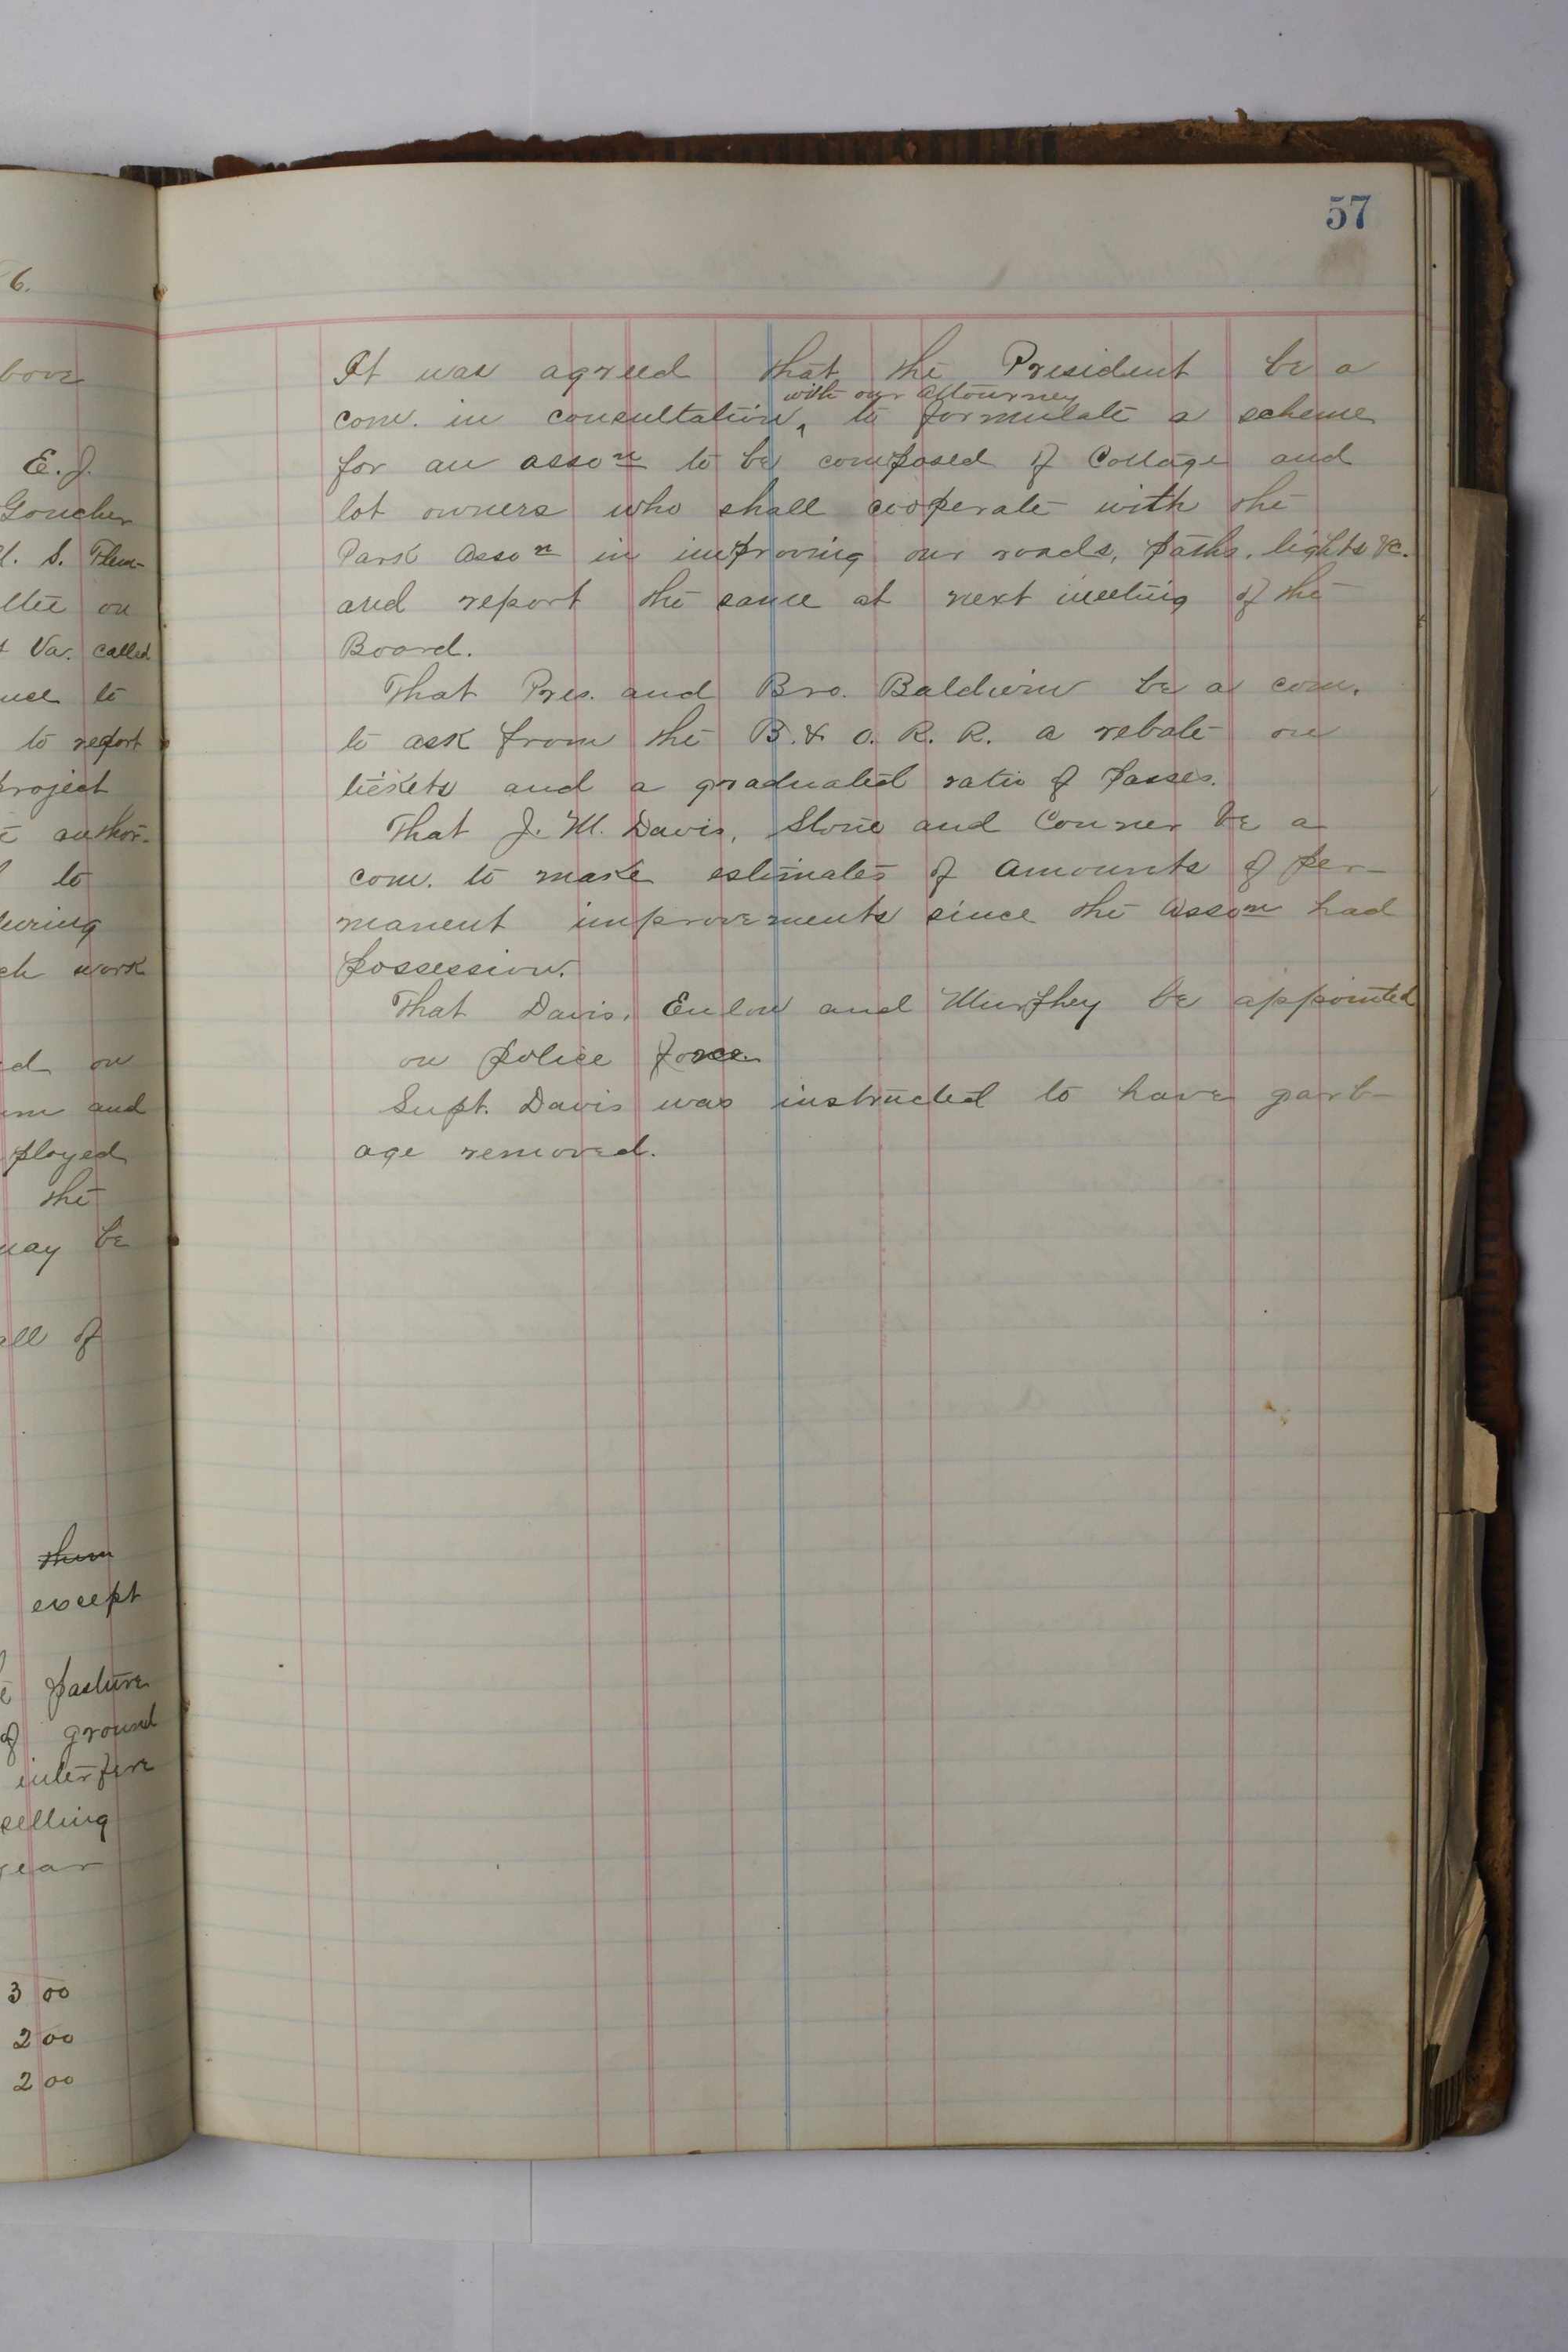 57
6.
bove
E. J.
Goucher
S. Flem-
ttee on
Va. called
to
to report
project
author-
to
uring
ch work
ed on
um and
ployed
the
may be
all of
them
except
pasture
of ground
interfere
selling
year
3 00
2 00
2 00
It was agreed that the President be a
with our Attourney
com. in consultation ‸ to formulate a scheme
for an asson to be composed of Cottage and
lot owners who shall cooperate with the
Park Asson in improving our roads, paths, lights &c.
and report the same at next meeting of the
Board.
That Pres. and Bro. Baldwin be a com.
to ask from the B. & O. R. R. a rebate on
tickets and a graduated ratio of passes.
That J. M. Davis, Stone and Conner be a
com. to make estimates of amounts of per-
manent improvements since the Asson had
possession.
That Davis, Enlow and Murphey be appointed
on police force.
Supt. Davis was instructed to have garb-
age removed.